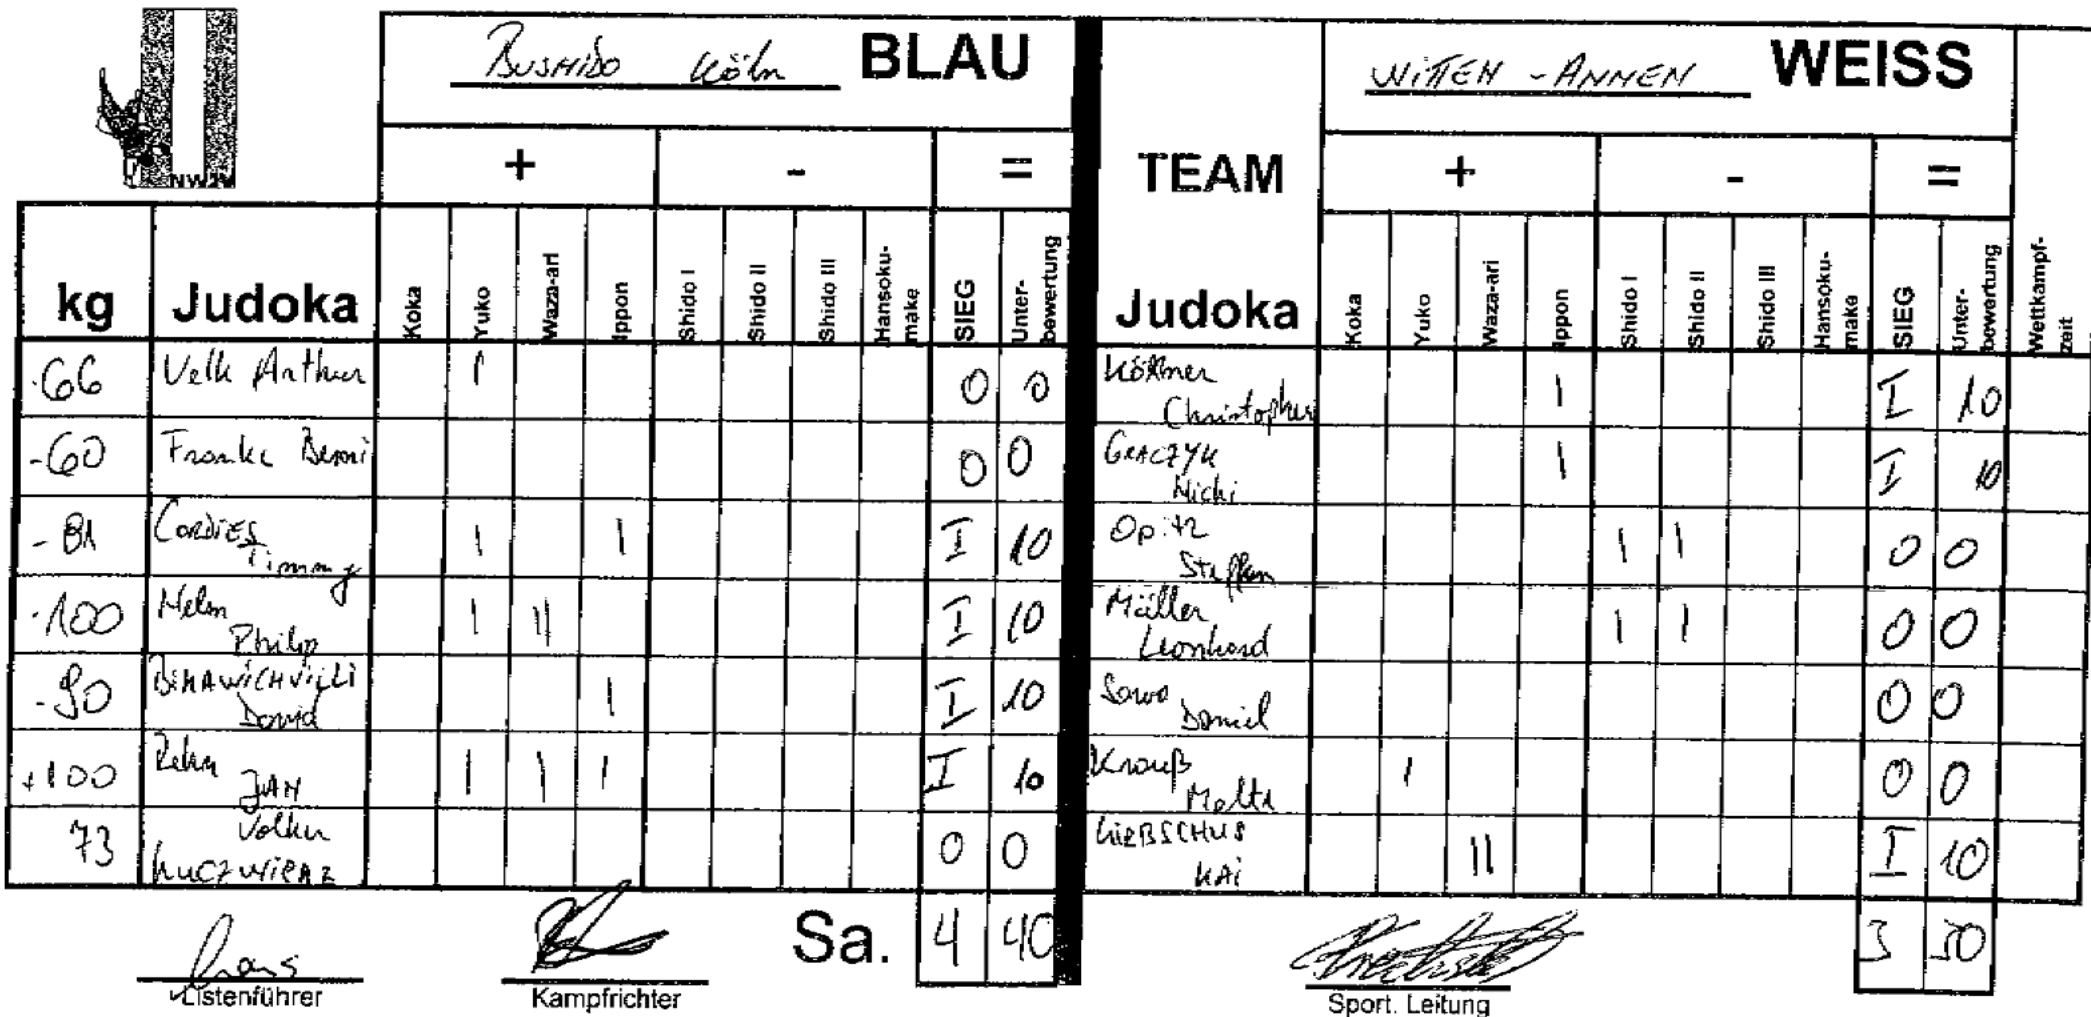 Bushido Köln BLAU
WITTEN - ANNEN WEISS
NWJV
+ - =
TEAM
+ - =
kg Judoka Koka Yuko Waza-ari Ippon Shido I Shido II Shido III Hansoku-make SIEG Unter-bewertung
Judoka Koka Yuko Waza-ari Ippon Shido I Shido II Shido III Hansoku-make SIEG Unter-bewertung Wettkampf-zeit
-66 Velk Arthur I 0 0
Christopher I I 10
-60 Franke Benni 0 0
GRACZYK Nicki I I 10
-81 CORDIES Timmy I I I 10
Opitz Steffen I I 0 0
-100 Helm Philip I II I 10
Müller Leonhard I I 0 0
-90 David I I 10
Sowa Daniel 0 0
+100 Rehn JAN I I I I 10
Krauß Malte I 0 0
73 Volker 0 0
LIEBSCHUS KAI II I 10
Sa. 4 40
3 30
Listenführer
Kampfrichter
Sport. Leitung